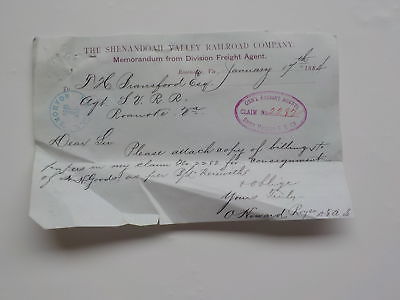 THE SHENANDOAH VALLEY RAILROAD COMPANY
Memorandum from Division Freight Agent.
Roanoke, Va., January 17th 1884
To
Esq
Agt S. V. R. R.
Roanoke Va
GEN'L FREIGHT AGENTS
CLAIM No.
Dear Sir Please attach copy of billing to
papers in my claim No for consignment
of H. H. Goods as per B/L herewith
& oblige
Yours Truly
O Howard